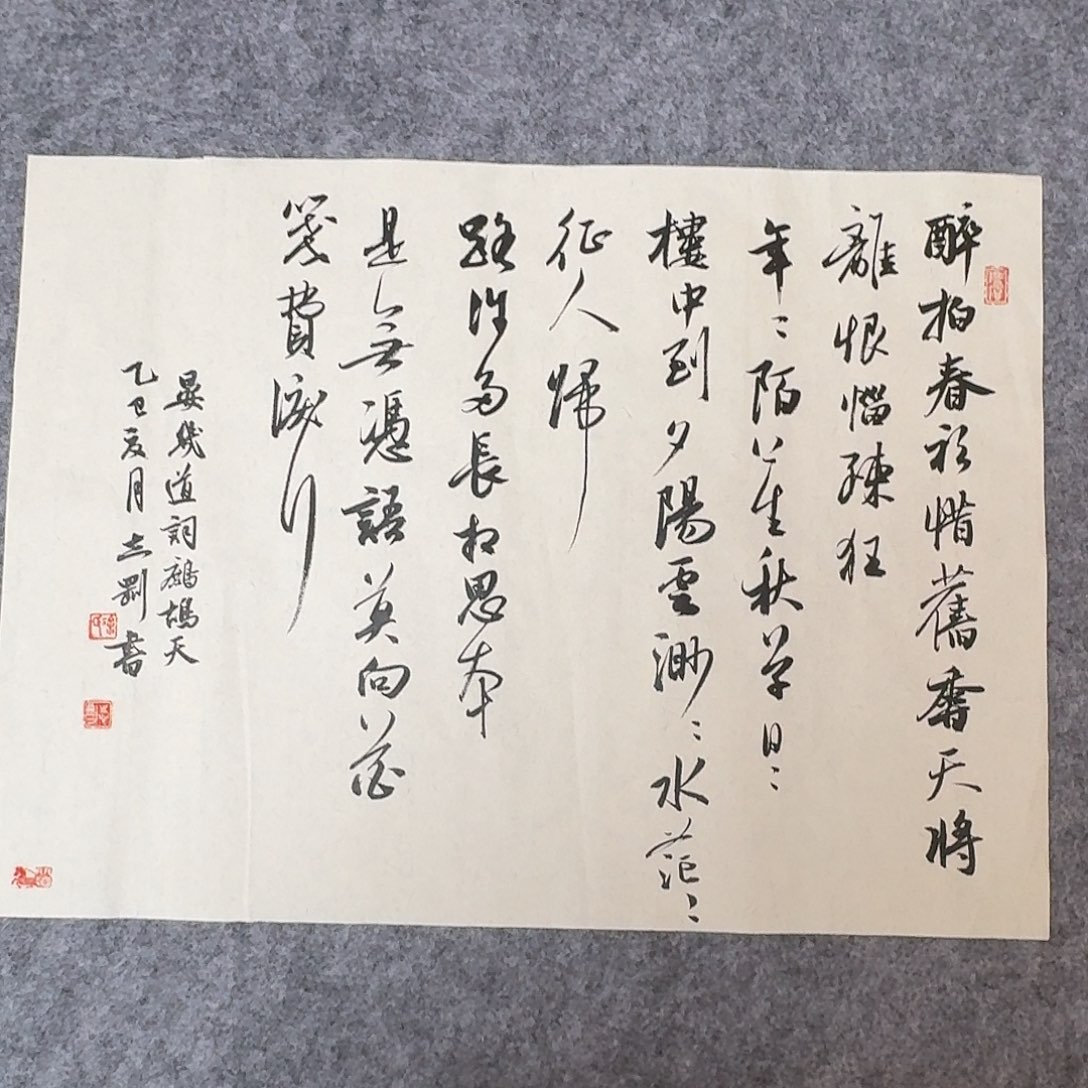 醉拍春衫惜舊香天將
離恨惱疎狂
年〻陌上生秋草日〻
樓中到夕陽雲渺〻水茫〻
征人歸
路許多長相思本
是無憑語莫向花
箋費淚行
晏幾道詞鷓鴣天
乙巳亥月志剛書